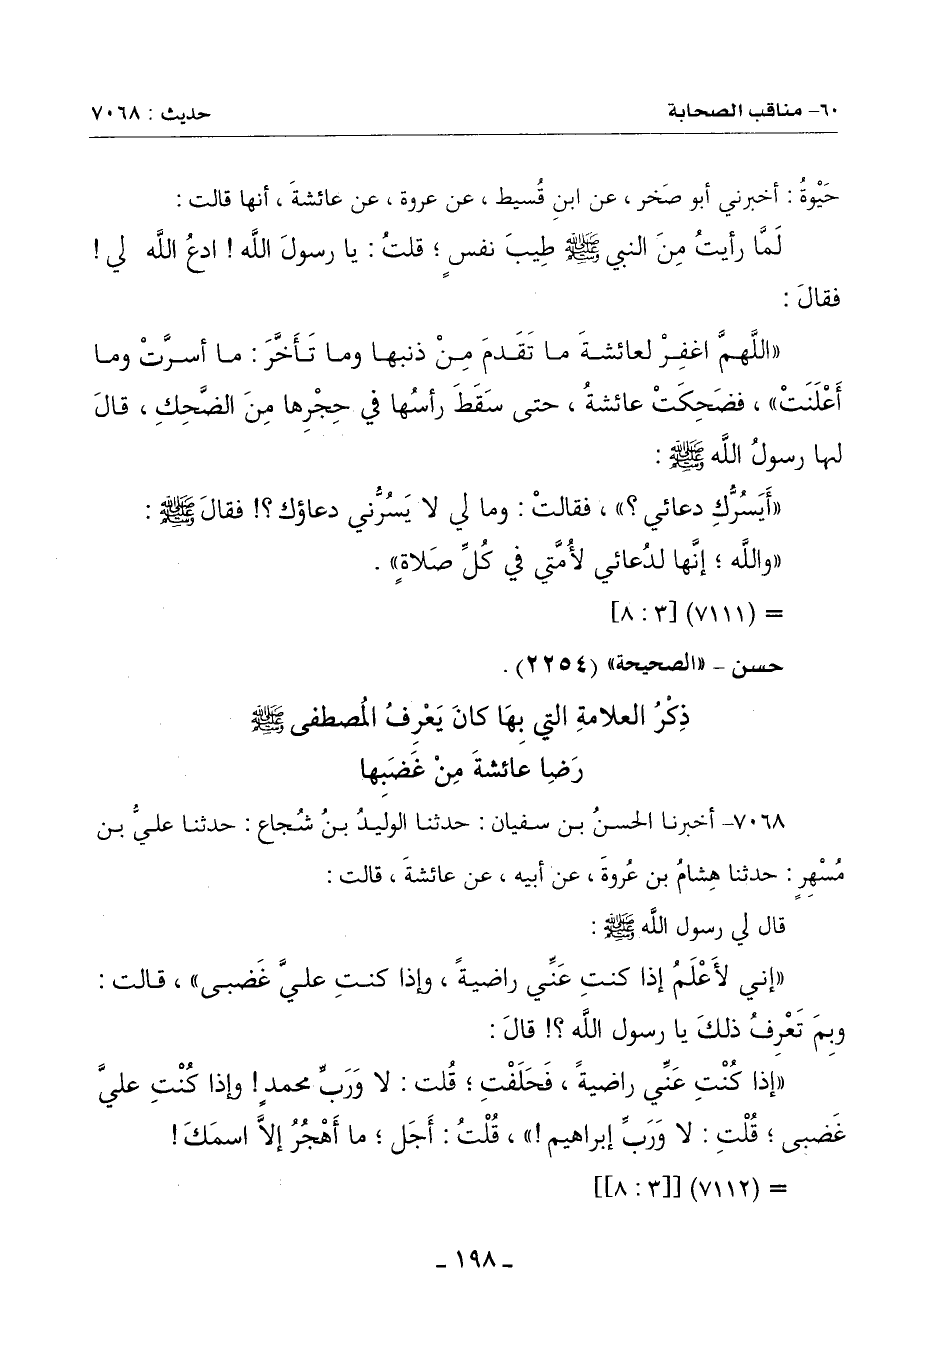 ٦٠- مناقب الصحابة حديث : ٧٠٦٨
حَيْوةُ : أخبرني أبو صَخر ، عن ابنِ قُسيط ، عن عروة ، عن عائشةَ ، أنها قالت :
لَمَّا رأيتُ مِنَ النبي ﷺ طِيبَ نفسٍ ؛ قلتُ : يا رسولَ اللَّه ! ادعُ اللَّه لي !
فقالَ :
«اللَّهمَّ اغفِرْ لعائشةَ ما تقَدمَ مِنْ ذنبها وما تَأخَّرَ : ما أسرَّتْ وما
أَعْلَنَتْ» ، فضَحِكَتْ عائشةُ ، حتى سَقَطَ رأسُها في حِجْرِها مِنَ الضَّحِكِ ، قالَ
لها رسولُ اللَّه ﷺ :
«أَيَسُرُّكِ دعائي ؟» ، فقالتْ : وما لي لا يَسُرُّني دعاؤك ؟! فقالَ ﷺ :
«واللَّه ؛ إنَّها لدُعائي لأُمَّتي في كُلِّ صَلاةٍ» .
= (٧١١١) [٣ : ٨]
حسن – «الصحيحة» (٢٢٥٤) .
ذِكْرُ العلامةِ التي بِهَا كانَ يَعْرِفُ المُصطفى ﷺ
رَضِا عائشةَ مِنْ غَضَبِها
٧٠٦٨- أخبرنا الحسنُ بن سفيان : حدثنا الوليدُ بنُ شُجاع : حدثنا عليُّ بن
مُسْهِرٍ : حدثنا هِشامُ بن عُروةَ ، عن أبيه ، عن عائشةَ ، قالت :
قال لي رسول اللَّه ﷺ :
«إني لأَعْلَمُ إذا كنتِ عَنِّي راضيةً ، وإذا كنتِ عليَّ غَضبى» ، قالت :
وبِمَ تَعْرِفُ ذلكَ يا رسول اللَّه ؟! قالَ :
«إذا كُنْتِ عَنِّي راضيةً ، فَحَلَفْتِ ؛ قُلت : لا وَرَبِّ محمدٍ ! وإذا كُنْتِ عليَّ
غَضبى ؛ قُلْتِ : لا وَرَبِّ إبراهيم !» ، قُلْتُ : أجَل ؛ ما أَهْجُرُ إلاَّ اسمَكَ !
= (٧١١٢) [[٣ : ٨]]
ـ ١٩٨ ـ